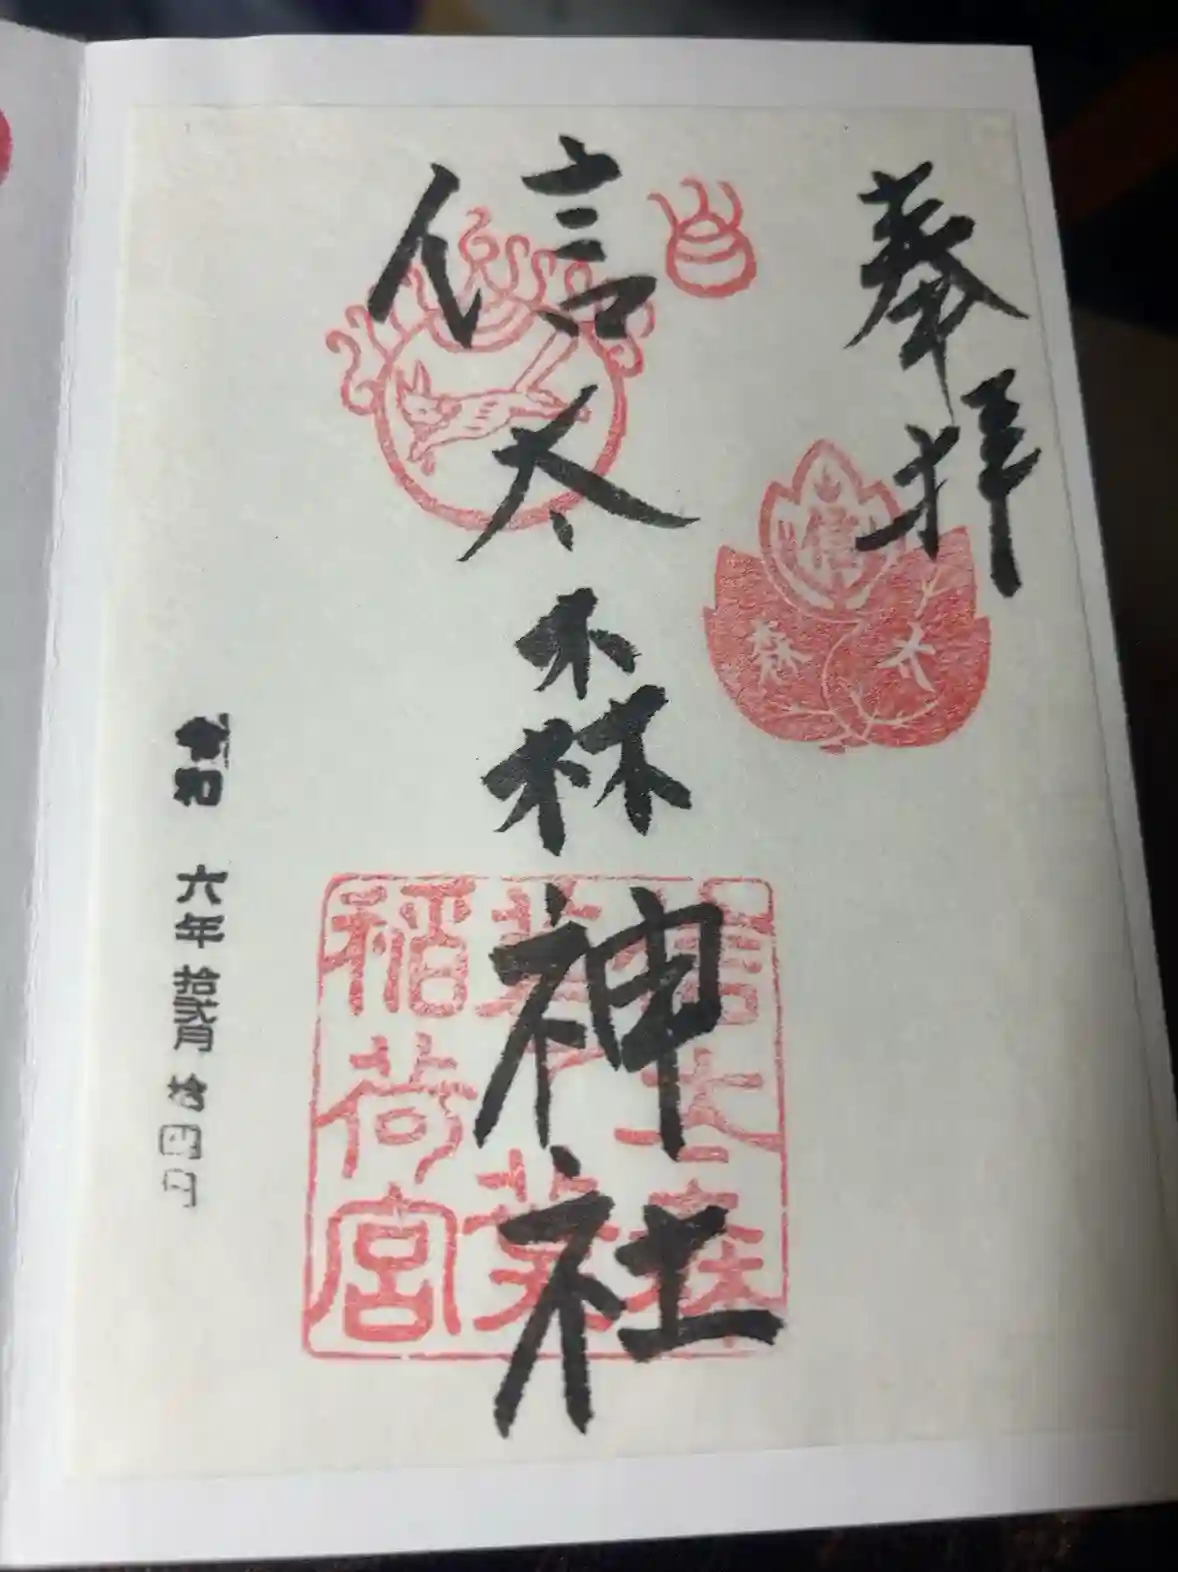 奉拝
信
太
森
信太森神社
信太森
葛葉
稲荷宮
令和 六年 拾弐月 拾四日